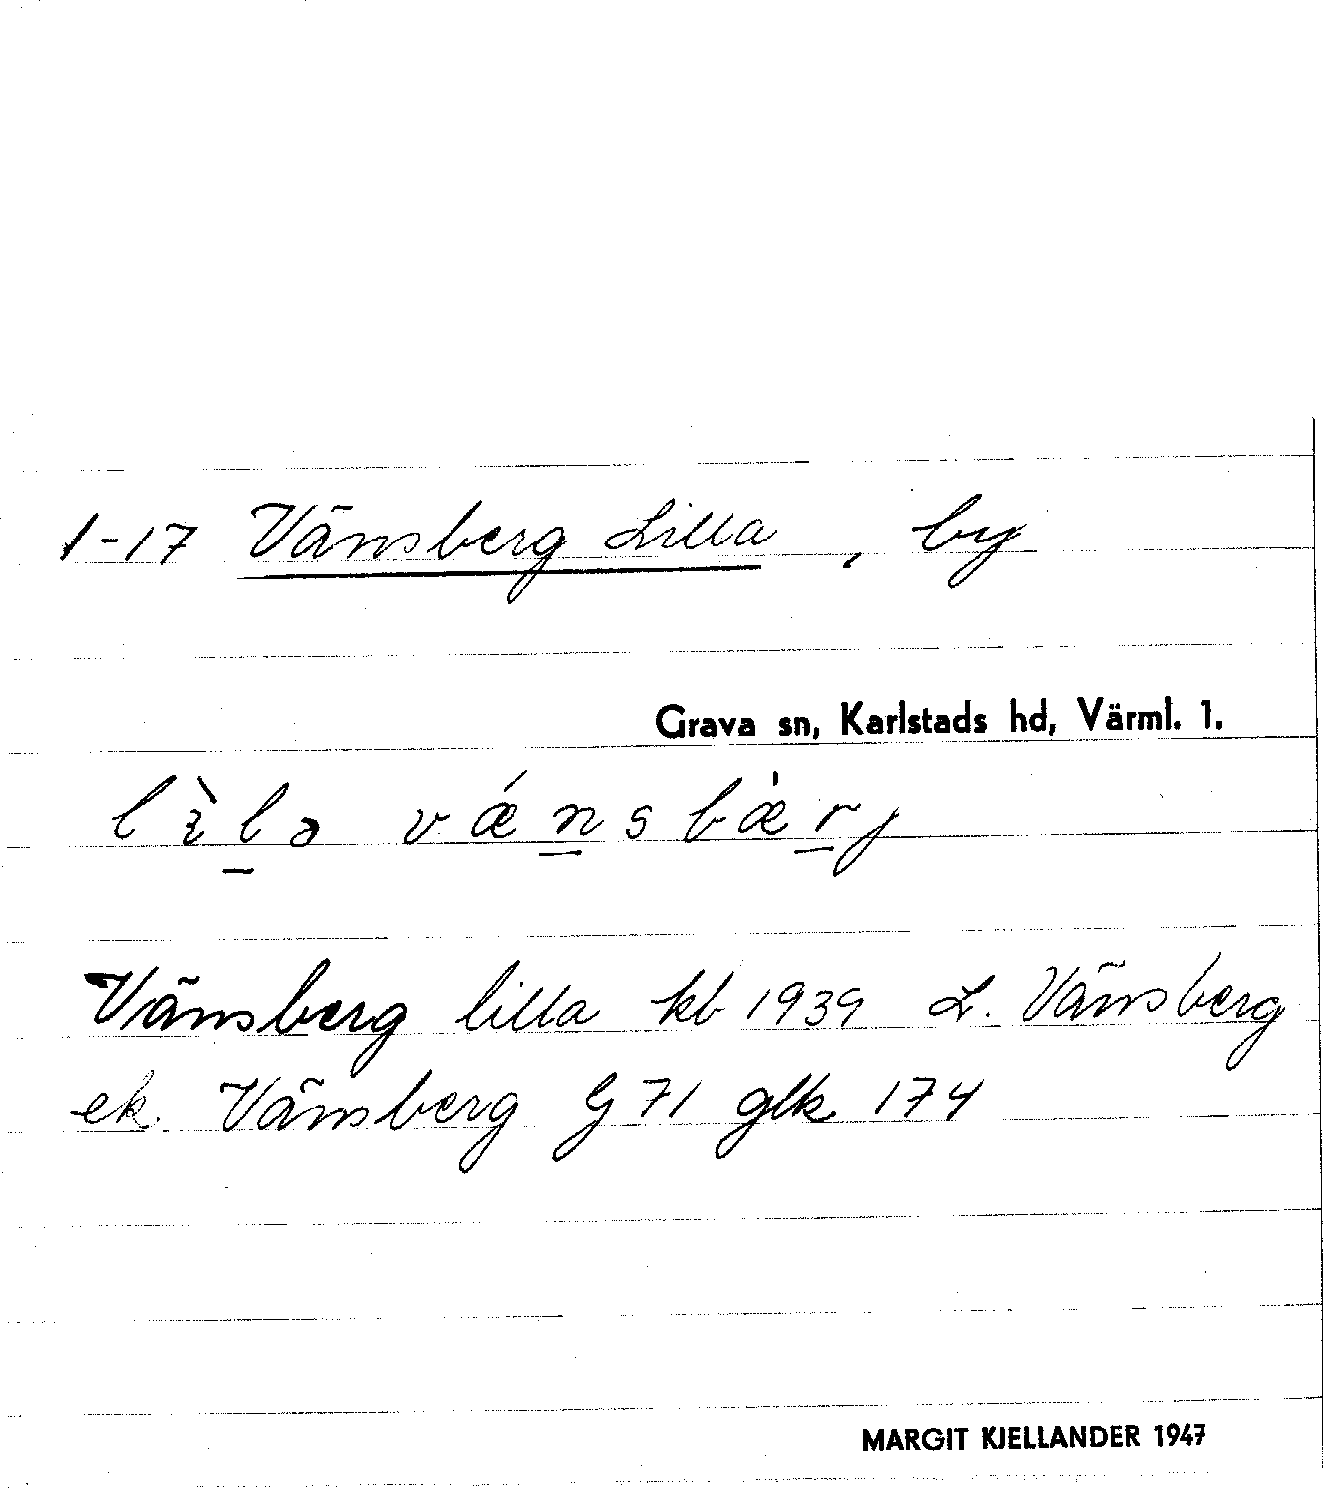 1-17 Vänsberg Lilla, by
Grava sn, Karlstads hd, Värml. 1.
lɩ̀l̲ə vǽn̲sbæ̀r̲j
Vänsberg lilla kb 1939 L. Vänsberg
ek. Vänsberg G 71 glk 174
MARGIT KJELLANDER 1947